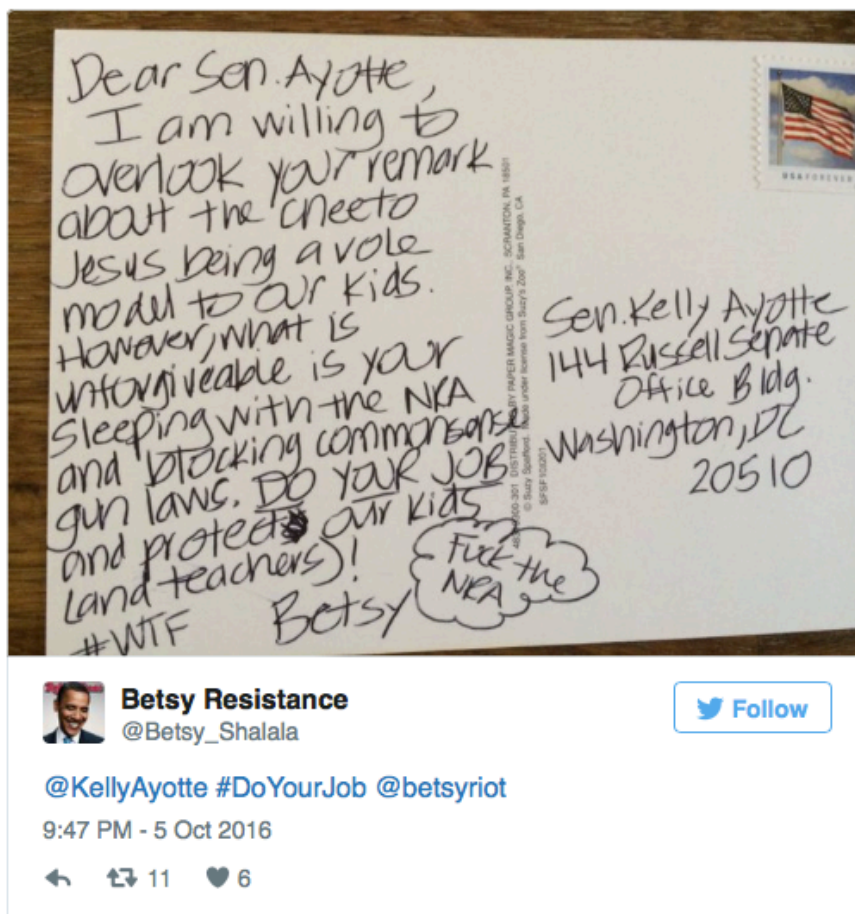 Dear Sen. Ayotte,
I am willing to
overlook your remark
about the cheeto
Jesus being a role
model to our kids.
However, what is
unforgiveable is your
sleeping with the NRA
and blocking commonsense
gun laws. DO YOUR JOB
and protect our kids
(and teachers)!
#WTF Betsy
Fuck the
NRA
48 DISTRIBUTED BY PAPER MAGIC GROUP, INC., SCRANTON, PA 18501
© Suzy Spafford. Made under license from Suzy's Zoo® San Diego, CA
USA FOREVER
Sen. Kelly Ayotte
144 Russell Senate
Office Bldg.
Washington, DC
20510
Betsy Resistance
@Betsy_Shalala
Follow
@KellyAyotte #DoYourJob @betsyriot
9:47 PM - 5 Oct 2016
11 6